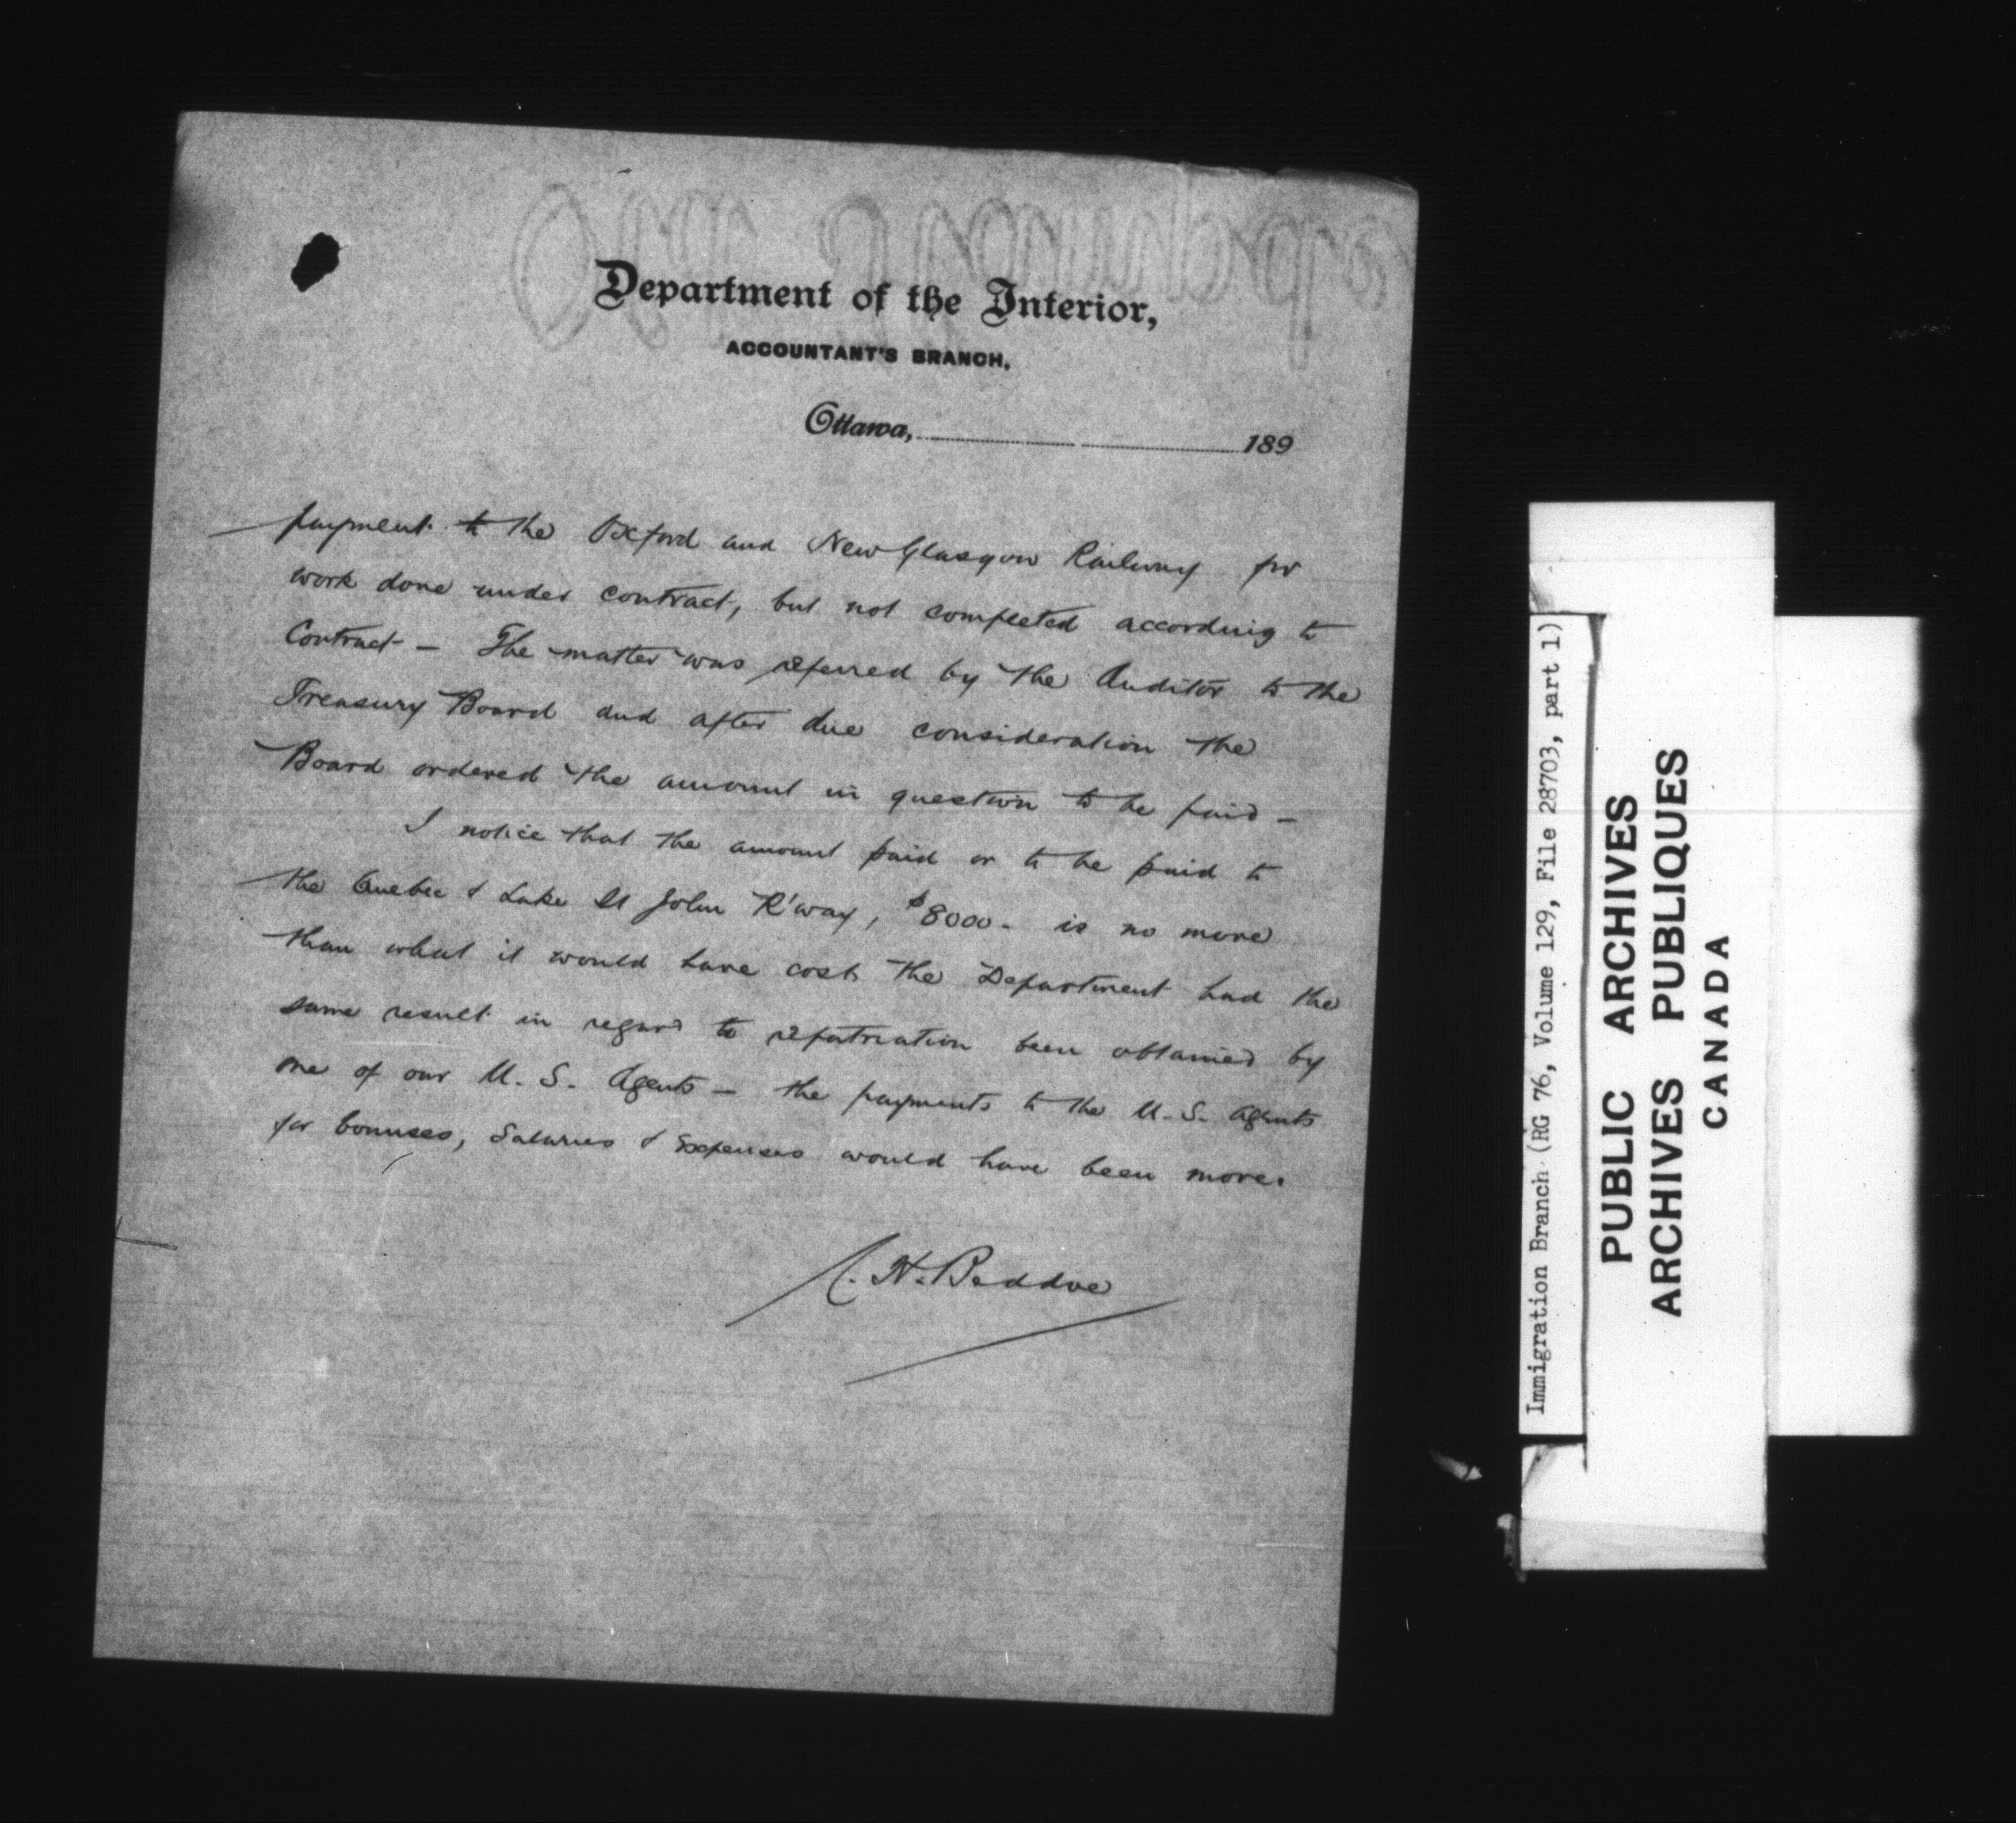 Department of the Interior,
ACCOUNTANT'S BRANCH,
Ottawa, 189
payment to the Oxford and New Glasgow Railway for
work done under contract, but not completed according to
Contract - The matter was referred by the Auditor to the
Treasury Board and after due consideration the
Board ordered the amount in question to be paid -
I notice that the amount paid or to be paid to
the Quebec & Lake St John R'way, $8000- is no more
than what it would have cost the Department had the
same result in regard to repatriation been obtained by
one of our U. S. Agents - the payments to the U. S. Agents
for bonuses, Salaries & Expenses would have been more.
C. H. Beddoe
Immigration Branch (RG 76, Volume 129, File 28703, part 1)
PUBLIC ARCHIVES
ARCHIVES PUBLIQUES
CANADA